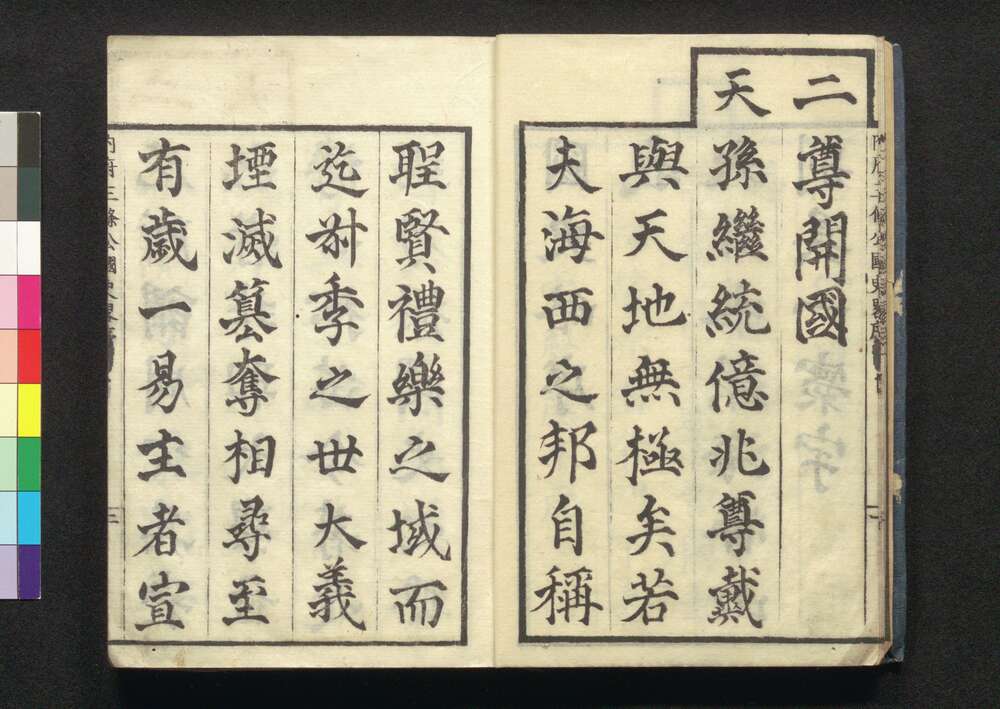 二尊開國
天孫繼統億兆尊戴
與天地無極矣若
夫海西之邦自稱
聖賢禮樂之域而
迄叔季之世大義
堙滅篡奪相尋至
有歲一易主者宣